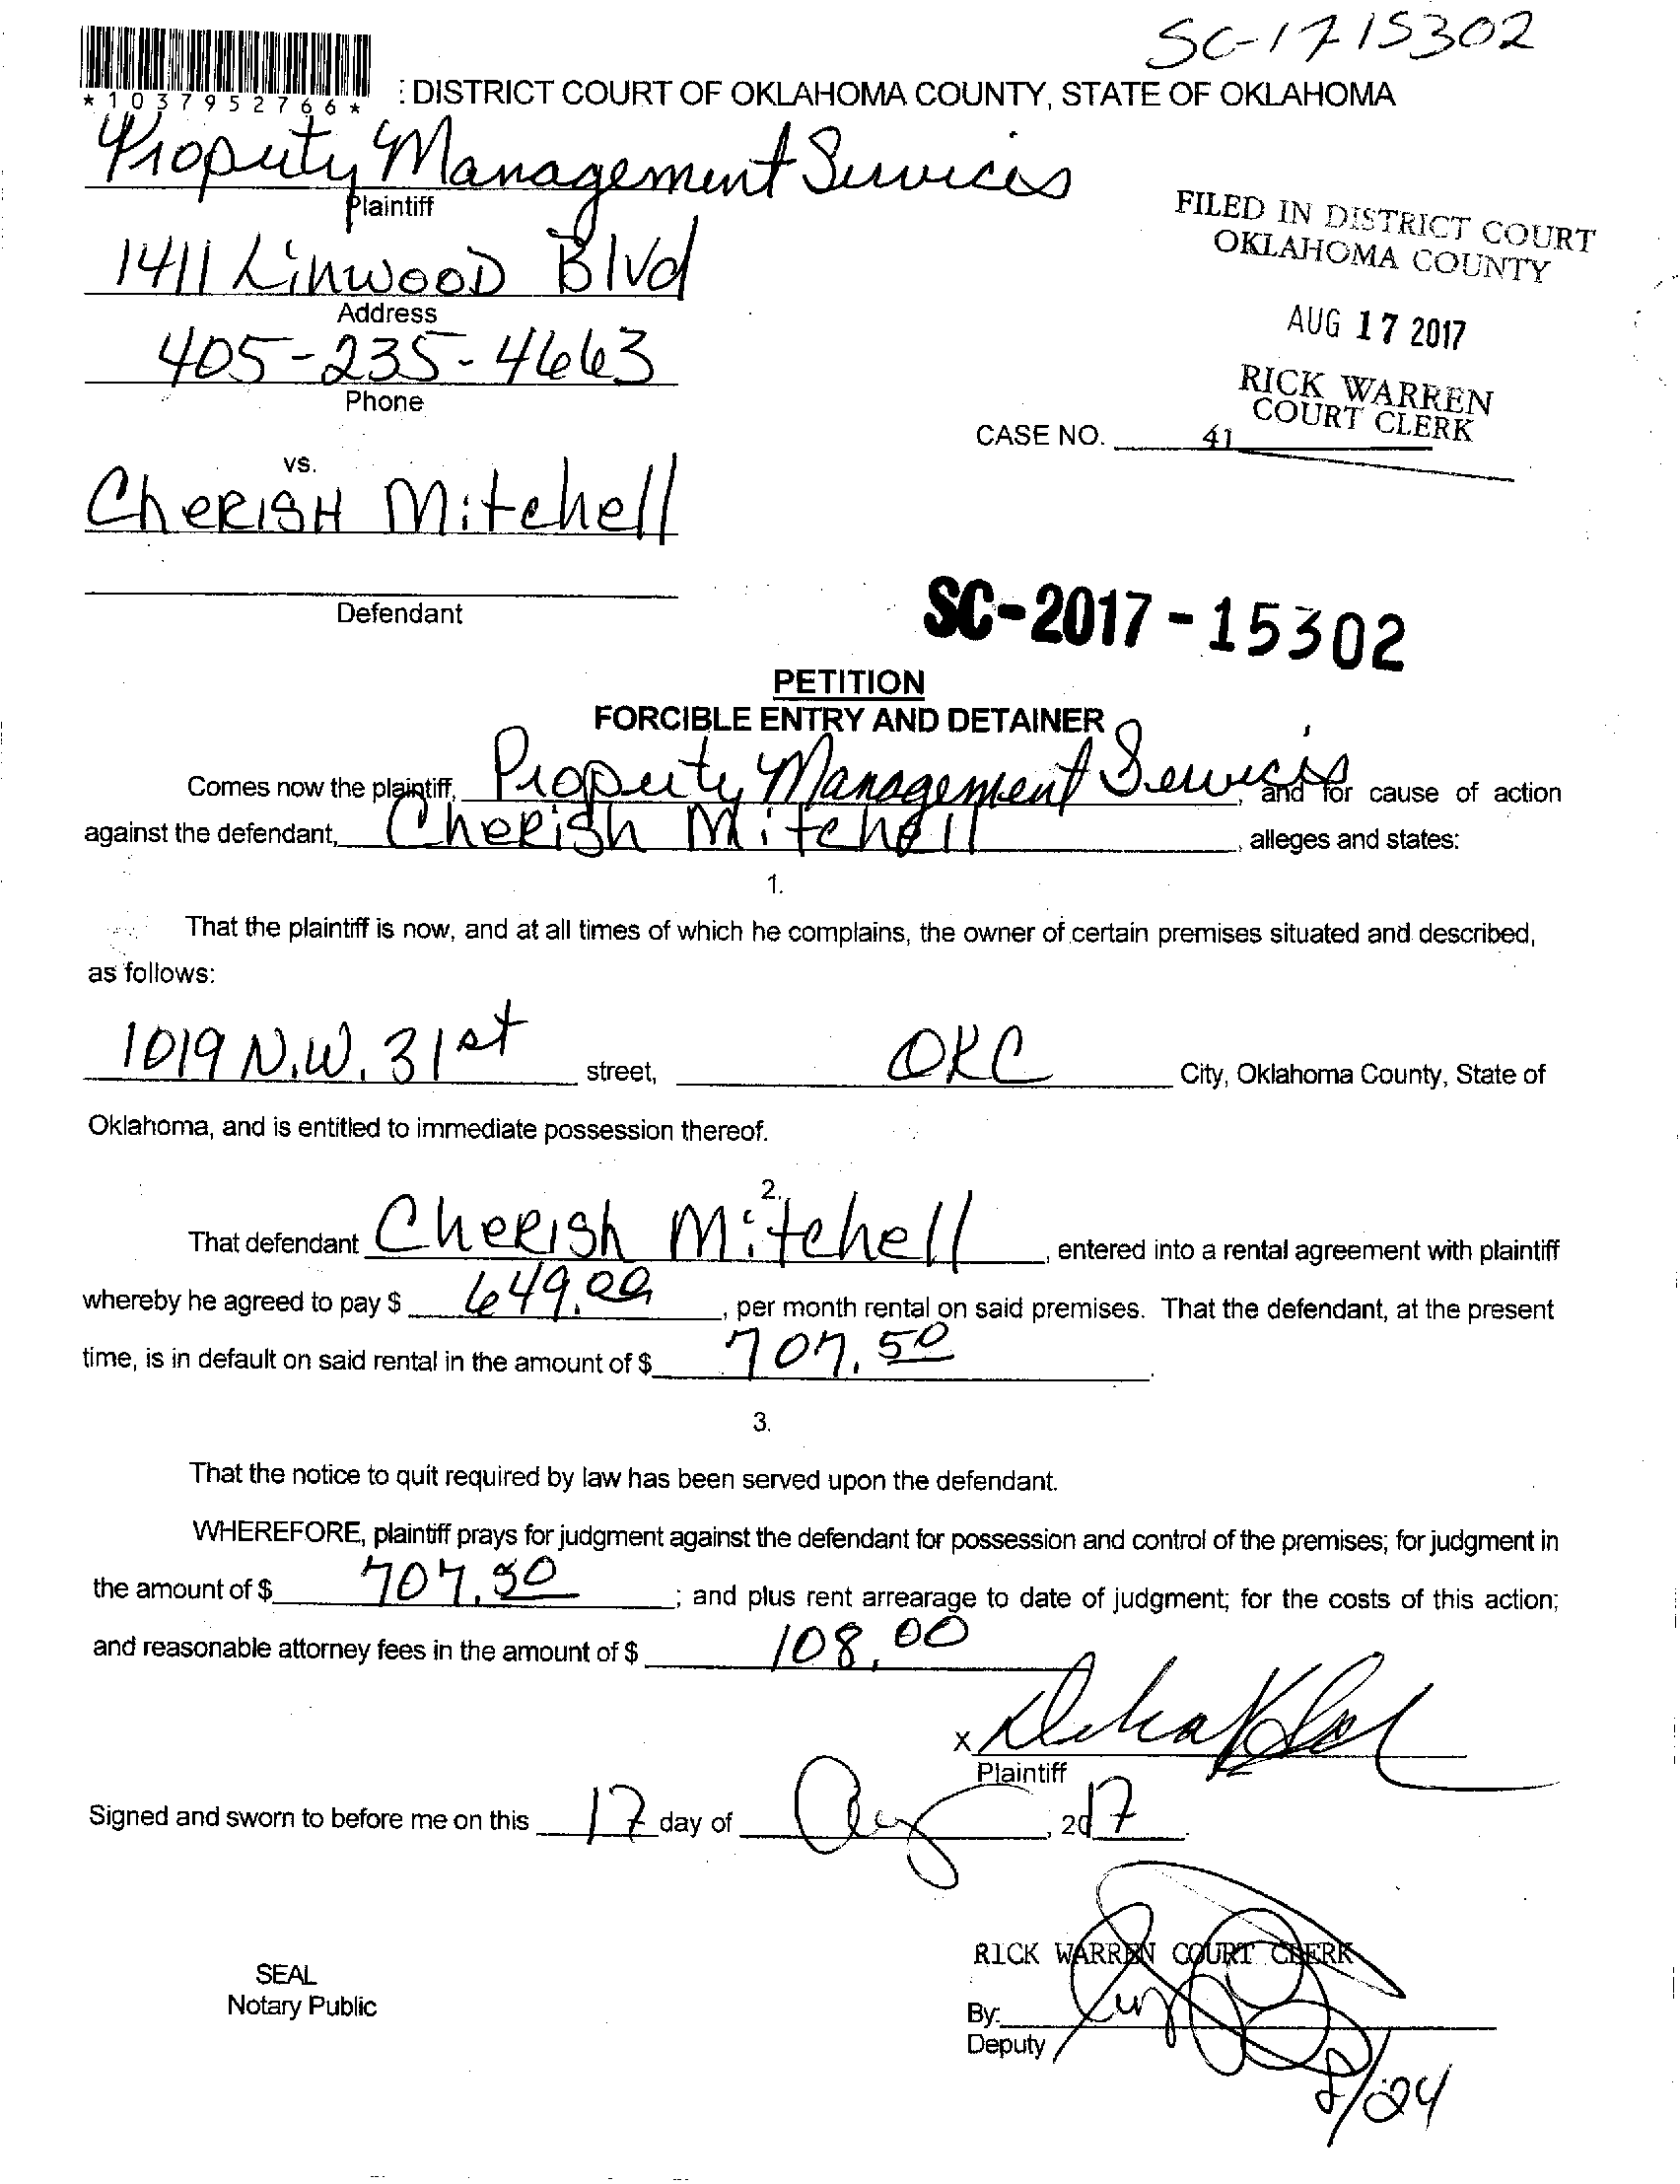 SC-17 15302
*1037952766*
: DISTRICT COURT OF OKLAHOMA COUNTY, STATE OF OKLAHOMA
Property Management Services
Plaintiff
FILED IN DISTRICT COURT
OKLAHOMA COUNTY
1411 Linwood Blvd
Address
AUG 17 2017
405-235-4663
Phone
RICK WARREN
COURT CLERK
CASE NO. 41
vs.
CHERISH Mitchell
Defendant
SC-2017-15302
PETITION
FORCIBLE ENTRY AND DETAINER
Comes now the plaintiff, Property Management Services, and for cause of action
against the defendant, Cherish Mitchell, alleges and states:
1.
That the plaintiff is now, and at all times of which he complains, the owner of certain premises situated and described,
as follows:
1019 N.W. 31st street, OKC City, Oklahoma County, State of
Oklahoma, and is entitled to immediate possession thereof.
2.
That defendant Cherish Mitchell, entered into a rental agreement with plaintiff
whereby he agreed to pay $ 649.00, per month rental on said premises. That the defendant, at the present
time, is in default on said rental in the amount of $ 707.50.
3.
That the notice to quit required by law has been served upon the defendant.
WHEREFORE, plaintiff prays for judgment against the defendant for possession and control of the premises; for judgment in
the amount of $ 707.50; and plus rent arrearage to date of judgment; for the costs of this action;
and reasonable attorney fees in the amount of $ 108.00
X
Plaintiff
Signed and sworn to before me on this 17 day of Aug, 2017.
RICK WARREN COURT CLERK
SEAL
Notary Public
By:
Deputy
8/24